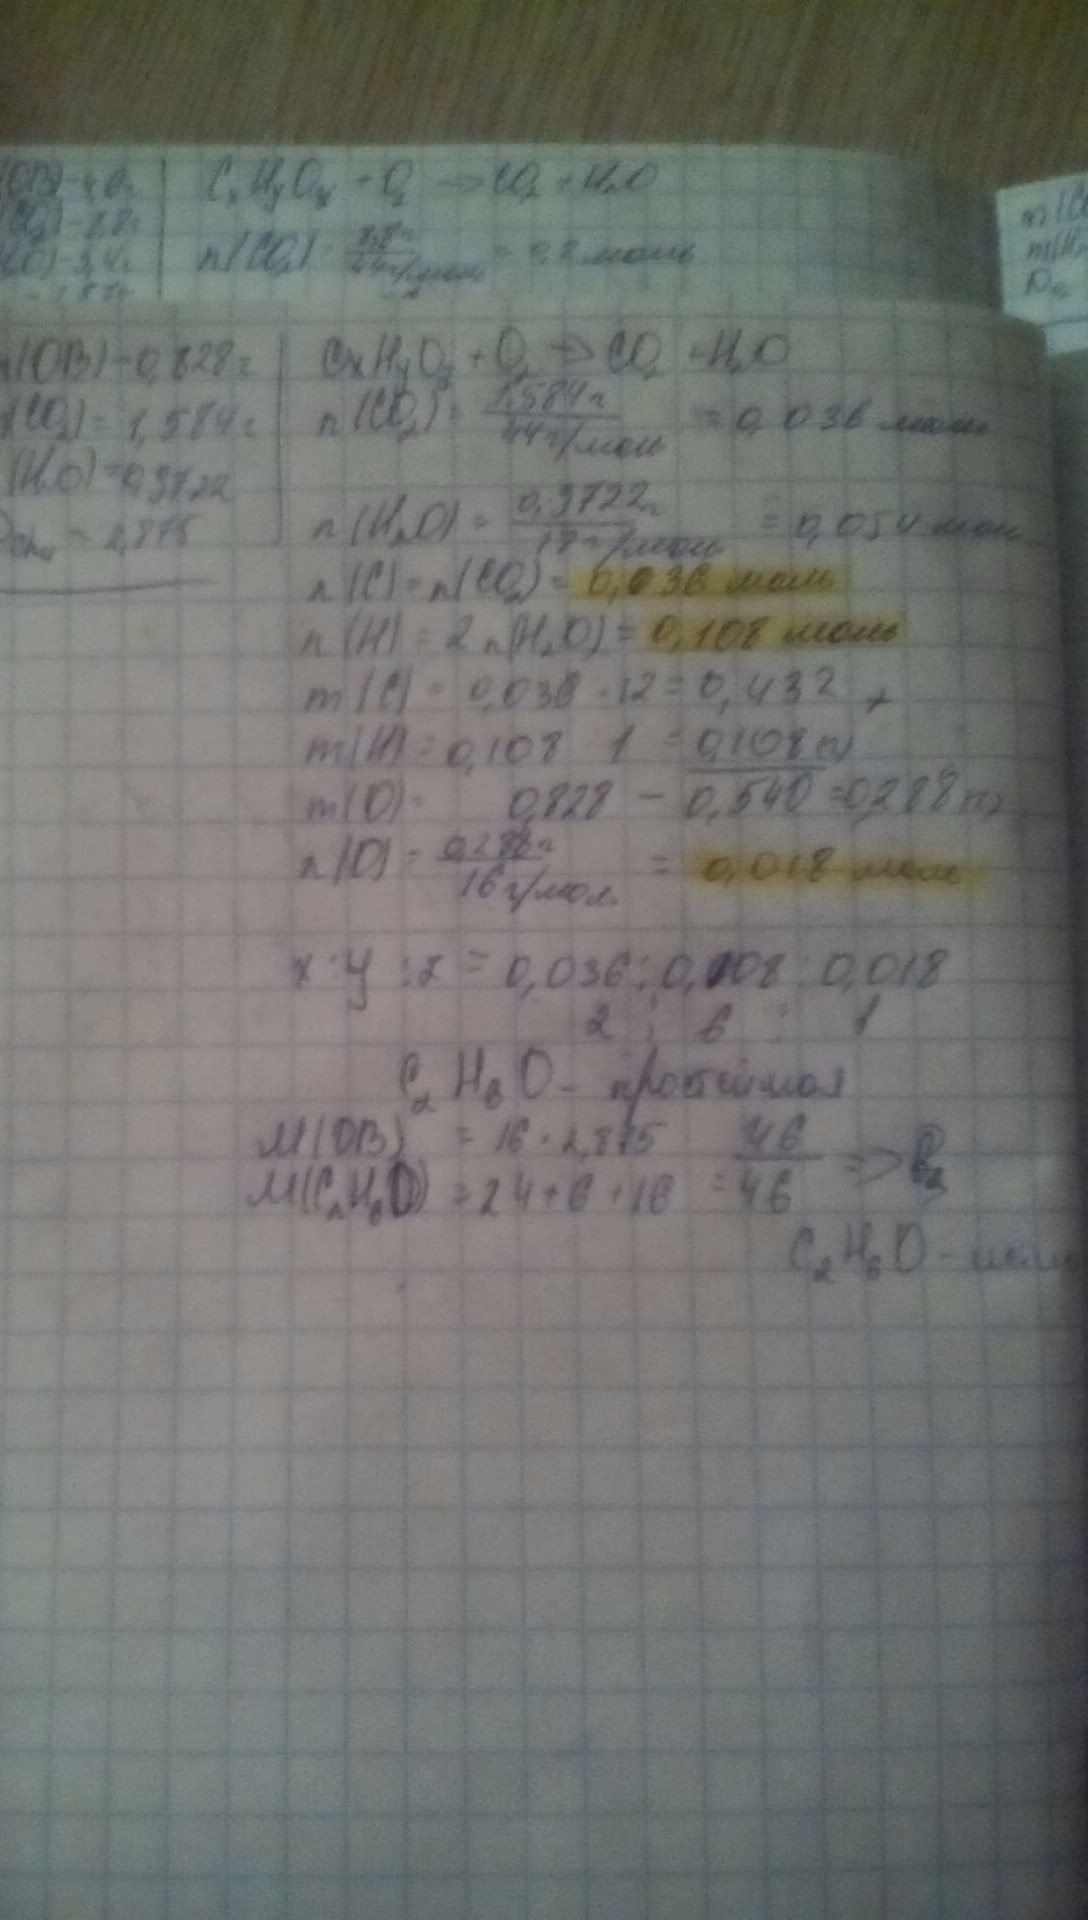 CxHyOz + O2 → CO2 + H2O
n(CO2) = 8,8г / 44г/моль = 0,2 моль
m(ОВ) - 0,828г
m(CO2) = 1,584г
(H2O) = 0,9722
DCH4 = 2,875
CxHyOz + O2 → CO2 + H2O
n(CO2) = 1,584г / 44г/моль = 0,036 моль
n(H2O) = 0,9722г / 18г/моль = 0,054 моль
n(C) = n(CO2) = 0,036 моль
n(H) = 2n(H2O) = 0,108 моль
m(C) = 0,036 · 12 = 0,432 +
m(H) = 0,108 1 = 0,108 (г)
m(O) = 0,828 - 0,540 = 0,288 (г)
n(O) = 0,288г / 16г/мол = 0,018 моль
x : y : z = 0,036 : 0,108 : 0,018
2 : 6 : 1
C2H6O - простейшая
M(ОВ) = 16 · 2,875 46
M(C2H6O) = 24+6+16 = 46 =>
C2H6O -